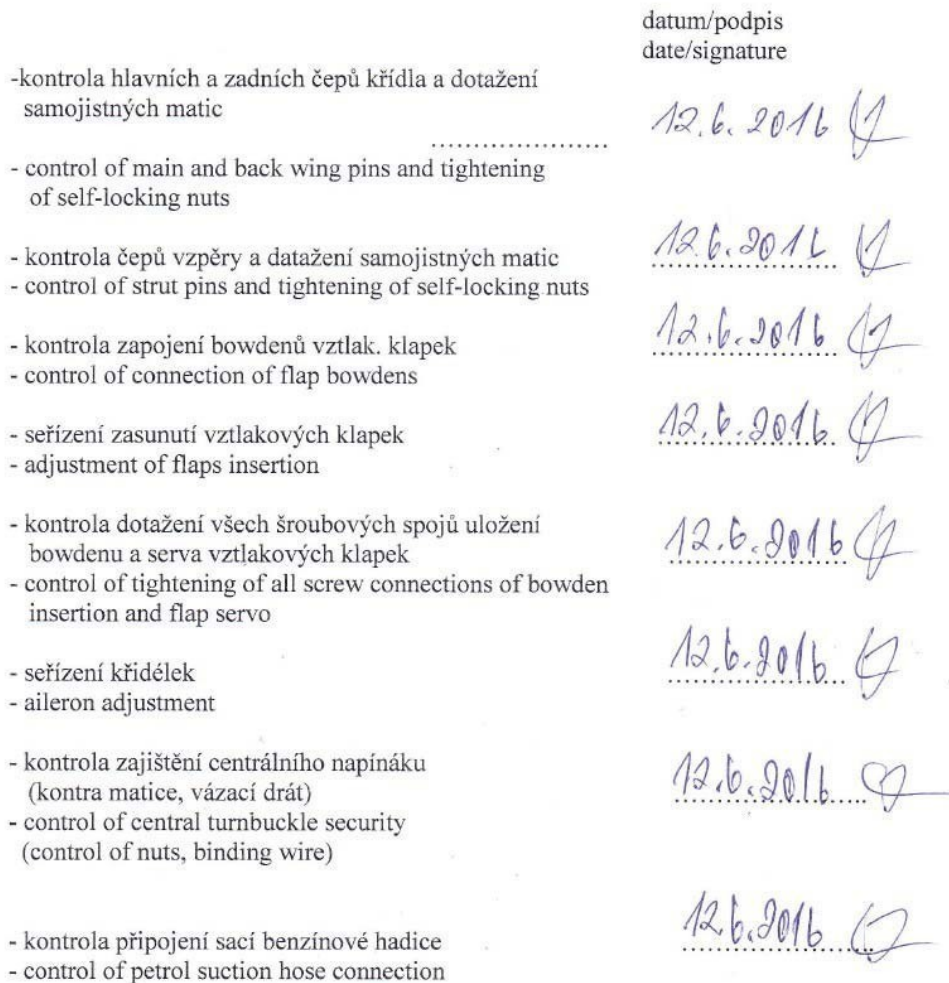 datum/podpis
date/signature
-kontrola hlavních a zadních čepů křídla a dotažení
samojistných matic
12.6. 2016
.....................
- control of main and back wing pins and tightening
of self-locking nuts
- kontrola čepů vzpěry a datažení samojistných matic 12.6.2016
- control of strut pins and tightening of self-locking nuts
- kontrola zapojení bowdenů vztlak. klapek 12.6.2016
- control of connection of flap bowdens
- seřízení zasunutí vztlakových klapek 12.6.2016
- adjustment of flaps insertion
- kontrola dotažení všech šroubových spojů uložení
bowdenu a serva vztlakových klapek 12.6.2016
- control of tightening of all screw connections of bowden
insertion and flap servo
- seřízení křidélek 12.6.2016
- aileron adjustment
- kontrola zajištění centrálního napínáku
(kontra matice, vázací drát) 12.6.2016
- control of central turnbuckle security
(control of nuts, binding wire)
- kontrola připojení sací benzínové hadice 12.6.2016
- control of petrol suction hose connection